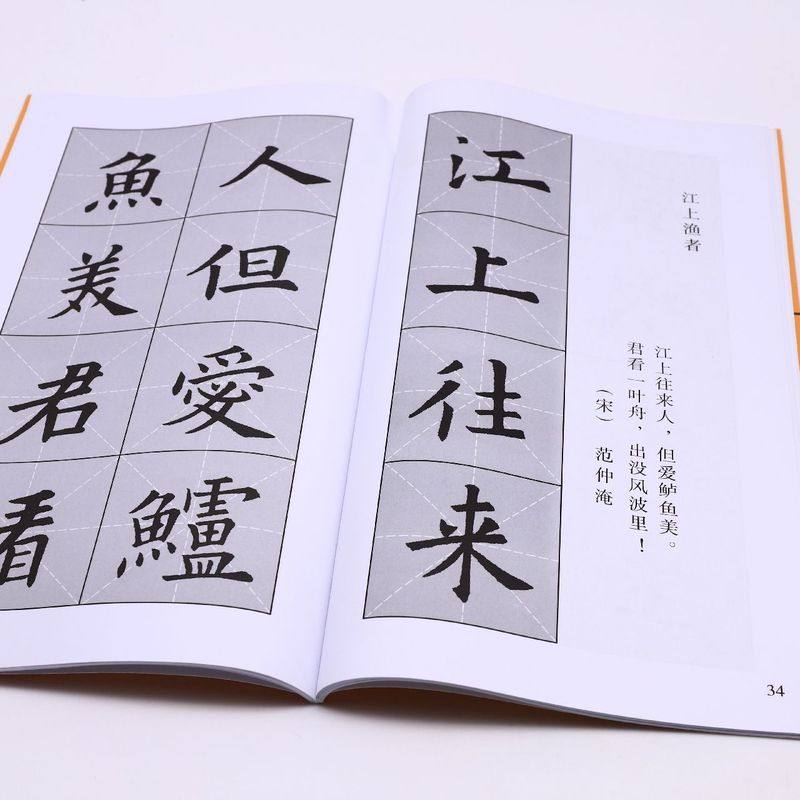 江上渔者
江上往来人，但爱鲈鱼美。
君看一叶舟，出没风波里！
（宋） 范仲淹
江上往来
人但愛鱸
魚美君看
34